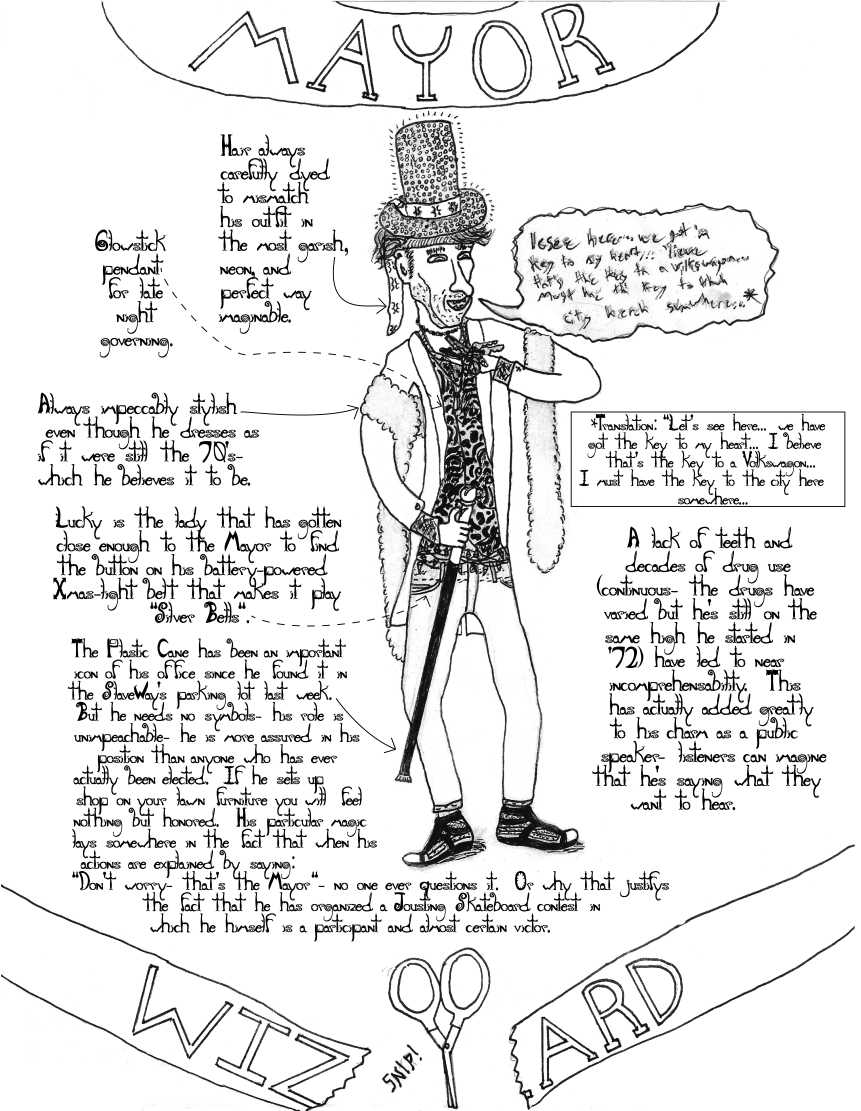 MAYOR
Hair always
carefully dyed
to mismatch
his outfit in
the most garish,
neon, and
perfect way
imaginable.
Glowstick
pendant
for late
night
governing.
key to my heart...
that's the key to a Volkswagon...
must have the key to
city here somewhere...*
Always impeccably stylish
even though he dresses as
if it were still the 70's-
which he believes it to be.
*Translation: "Let's see here... we have
got the key to my heart... I believe
that's the key to a Volkswagon...
I must have the key to the city here
somewhere...
Lucky is the lady that has gotten
close enough to the Mayor to find
the button on his battery-powered
Xmas-light belt that makes it play
"Silver Bells".
A lack of teeth and
decades of drug use
(continuous- the drugs have
varied but he's still on the
same high he started in
'72) have led to near
incomprehensability. This
has actually added greatly
to his charm as a public
speaker- listeners can imagine
that he's saying what they
want to hear.
The Plastic Cane has been an important
icon of his office since he found it in
the SlaveWay's parking lot last week.
But he needs no symbols- his role is
unimpeachable- he is more assured in his
position than anyone who has ever
actually been elected. If he sets up
shop on your lawn furniture you will feel
nothing but honored. His particular magic
lays somewhere in the fact that when his
actions are explained by saying:
"Don't worry- that's the Mayor"- no one ever questions it. Or why that justifys
the fact that he has organized a Jousting Skateboard contest in
which he himself is a participant and almost certain victor.
WIZ ARD
SNIP!